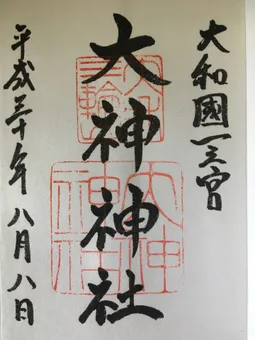 大和國一之宮
大神神社
平成三十年八月八日